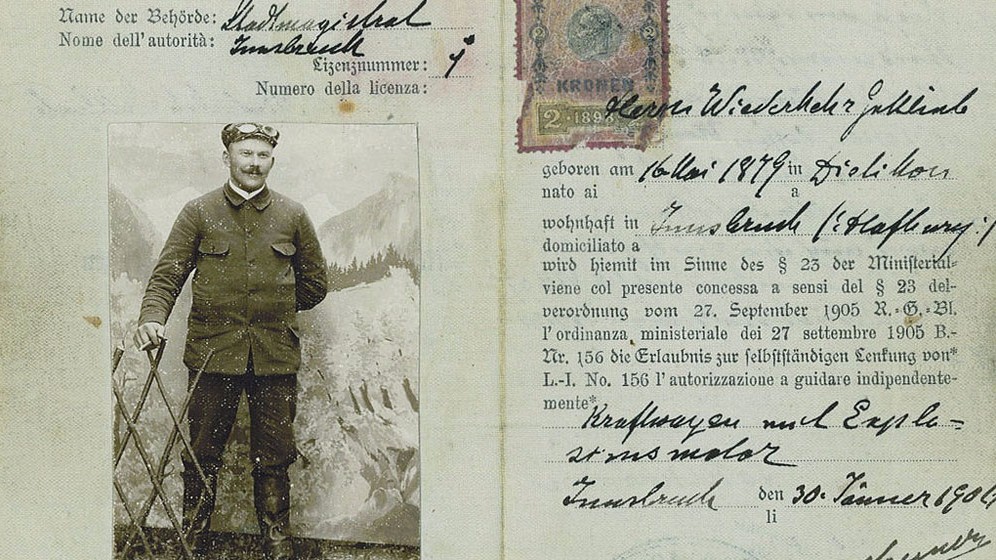 Name der Behörde: Stadtmagistrat
Nome dell'autorità: Innsbruck
Lizenznummer: 1
Numero della licenza:
2 2
KRONEN
2 · 1898
Herrn Wiederkehr Gottlieb
geboren am 16 Mai 1879 in Dietikon
nato ai a
wohnhaft in Innsbruck (: Hofburg :)
domiciliato a
wird hiemit im Sinne des § 23 der Ministerial-
viene col presente concessa a sensi del § 23 del-
verordnung vom 27. September 1905 R.-G.-Bl.
l'ordinanza ministeriale dei 27 settembre 1905 B.-
Nr. 156 die Erlaubnis zur selbstständigen Lenkung von*
L.-I. No. 156 l'autorizzazione a guidare indipendente-
mente*
Kraftwagen mit Explo-
sionsmotor
Innsbruck den 30. Jänner 190
li